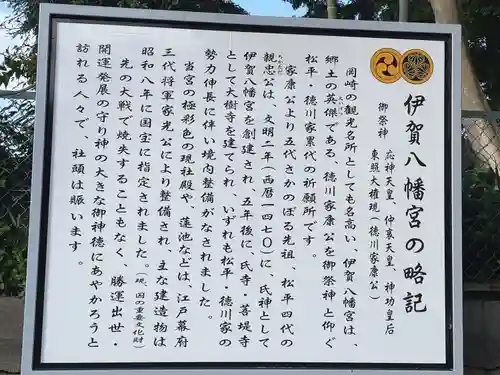 伊賀八幡宮の略記
御祭神　応神天皇、仲哀天皇、神功皇后
東照大権現（徳川家康公）
岡崎の観光名所としても名高い、伊賀八幡宮は、
郷土の英傑である、徳川家康公を御祭神と仰ぐ
いえやすこう
松平・徳川家累代の祈願所です。
家康公より五代さかのぼる先祖、松平四代の
ちかただこう
親忠公は、文明二年（西暦一四七〇）に、氏神として
伊賀八幡宮を創建され、五年後に、氏寺・菩提寺
として大樹寺を建てられ、いずれも松平・徳川家の
勢力伸長に伴い境内整備がなされました。
当宮の極彩色の現社殿や、蓮池などは、江戸幕府
三代将軍家光公により整備され、主な建造物は
昭和八年に国宝に指定されました。（現、国の重要文化財）
先の大戦で焼失することもなく、勝運出世・
開運発展の守り神の大きな御神徳にあやかろうと
訪れる人々で、社頭は賑います。